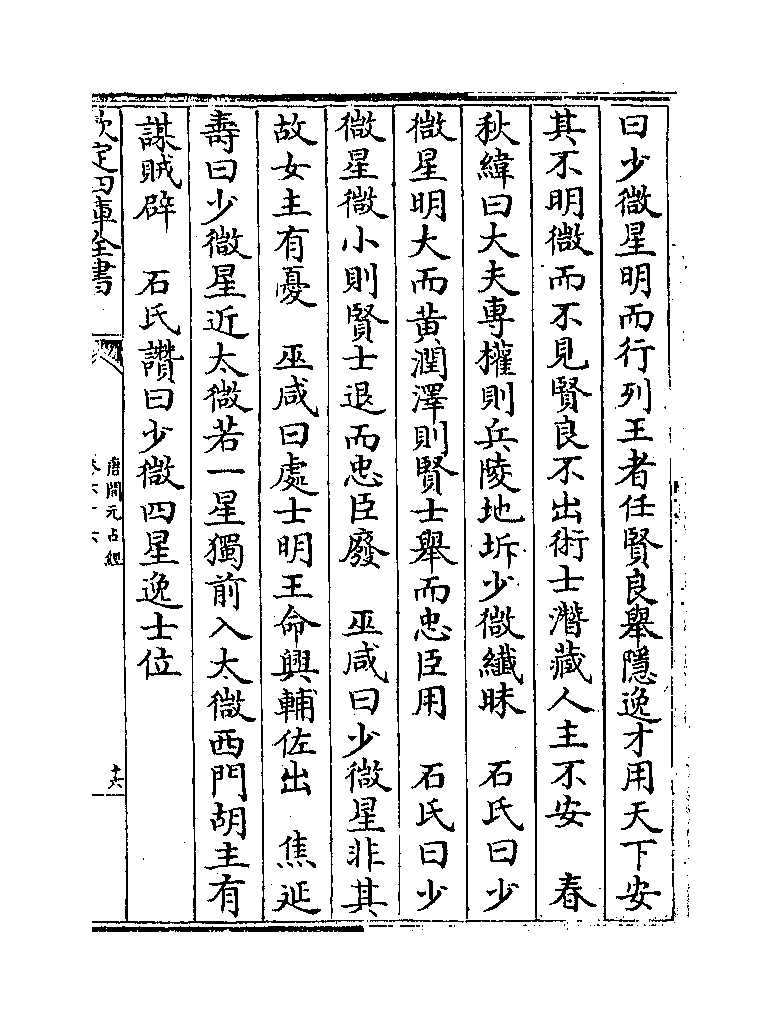 曰少微星明而行列王者任賢良舉隱逸才用天下安
其不明微而不見賢良不出術士潛藏人主不安　春
秋緯曰大夫專權則兵陵地坼少微纖昧　石氏曰少
微星明大而黃潤澤則賢士舉而忠臣用　石氏曰少
微星微小則賢士退而忠臣廢　巫咸曰少微星非其
故女主有憂　巫咸曰處士明王命興輔佐出　焦延
壽曰少微星近太微若一星獨前入太微西門胡主有
謀賊辟　石氏讚曰少微四星逸士位
欽定四庫全書
唐開元占經
卷六十六
十六